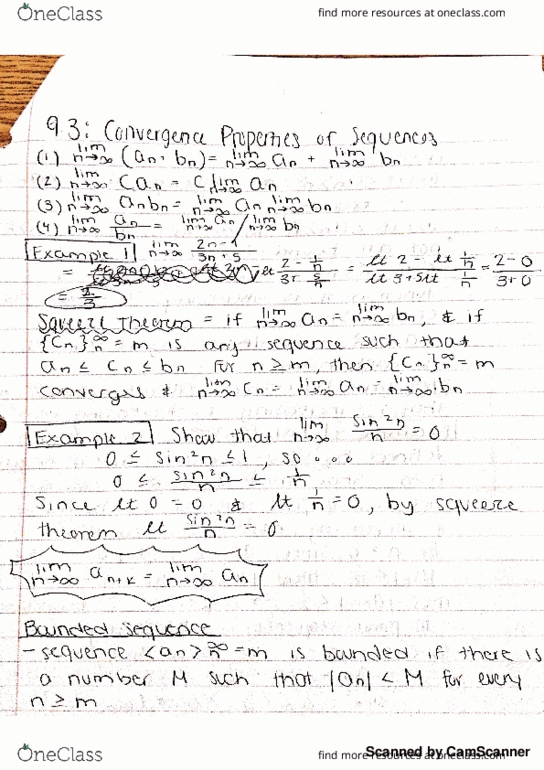 OneClass
find more resources at oneclass.com
9.3: Convergence Properties of Sequences
(1) lim n→∞ (an + bn) = lim n→∞ an + lim n→∞ bn
(2) lim n→∞ Can = C lim n→∞ an
(3) lim n→∞ anbn = lim n→∞ an lim n→∞ bn
(4) lim n→∞ an/bn = lim n→∞ an / lim n→∞ bn
Example 1 lim n→∞ 2n-1/3n+5
= lt 2 - 1/n / 3 + 5/n = lt 2 - lt 1/n / lt 3 + 5 lt 1/n = 2-0 / 3+0
= 2/3
Squeeze Theorem = if lim n→∞ an = lim n→∞ bn, & if
{Cn}∞ n=m is any sequence such that
an ≤ Cn ≤ bn for n ≥ m, then {Cn}∞ n=m
converges & lim n→∞ Cn = lim n→∞ an = lim n→∞ bn
Example 2 Show that lim n→∞ sin²n/n = 0
0 ≤ sin²n ≤ 1, so ...
0 ≤ sin²n/n ≤ 1/n
Since lt 0 = 0 & lt 1/n = 0, by squeeze
theorem lt sin²n/n = 0
lim n→∞ an+k = lim n→∞ an
Bounded Sequence
- sequence <an>∞ n=m is bounded if there is
a number M such that |an| < M for every
n ≥ m
Scanned by CamScanner
OneClass
find more resources at oneclass.com